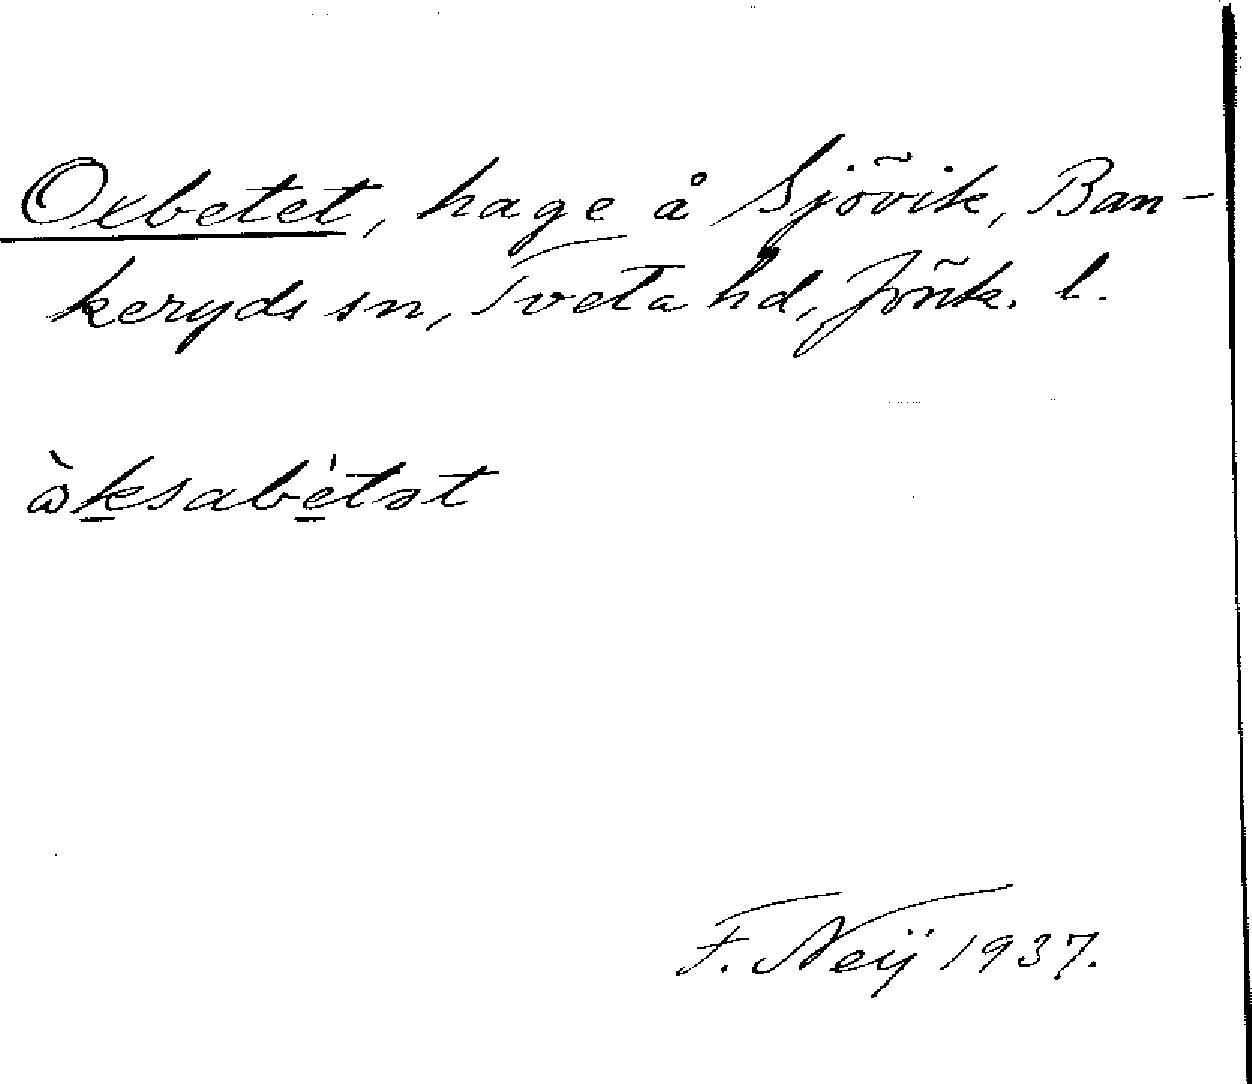 Oxbetet, hage å Sjövik, Ban-
keryds sn, Tveta hd, Jönk. l.
ὼksabé̍tət
F. Neÿ 1937.